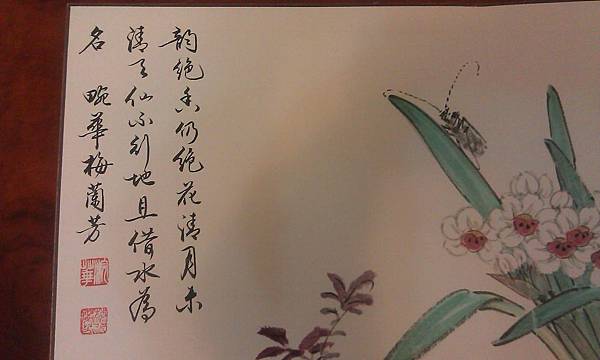 韵絶香仍絶花清月未
清天仙不行地且借水為
名 畹華梅蘭芳